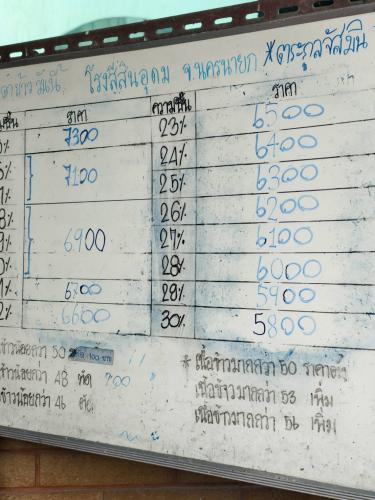 ข้าว วันนี้ โรงสีสินอุดม จ.นครนายก *ตระกูลจัสมิน
ราคา ความชื้น ราคา
7300 23% 6500
24% 6400
7100 25% 6300
26% 6200
6900 27% 6100
28% 6000
6700 29% 5900
2% 6600 30% 5800
ข้าวน้อยกว่า 50
น้อยกว่า 48 ตัด 200
ข้าวน้อยกว่า 46
* เนื้อข้าวมากกว่า 50 ราคา
เนื้อข้าวมากกว่า 53 เพิ่ม
เนื้อข้าวมากกว่า 56 เพิ่ม